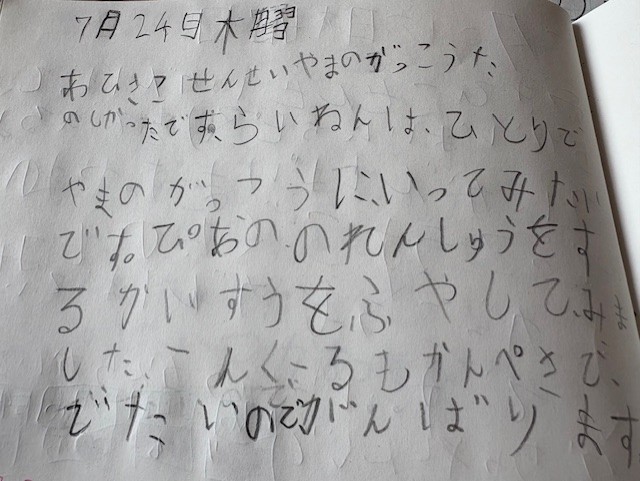 7月24日木曜
あひさこせんせいやまのがっこうた
のしかったです、らいねんは、ひとりで
やまのがっこうにいってみたい
です。ぴあののれんしゅうをす
るかいすうをふやしてみま
したこんくーるもかんぺきで
でたいのでがんばります